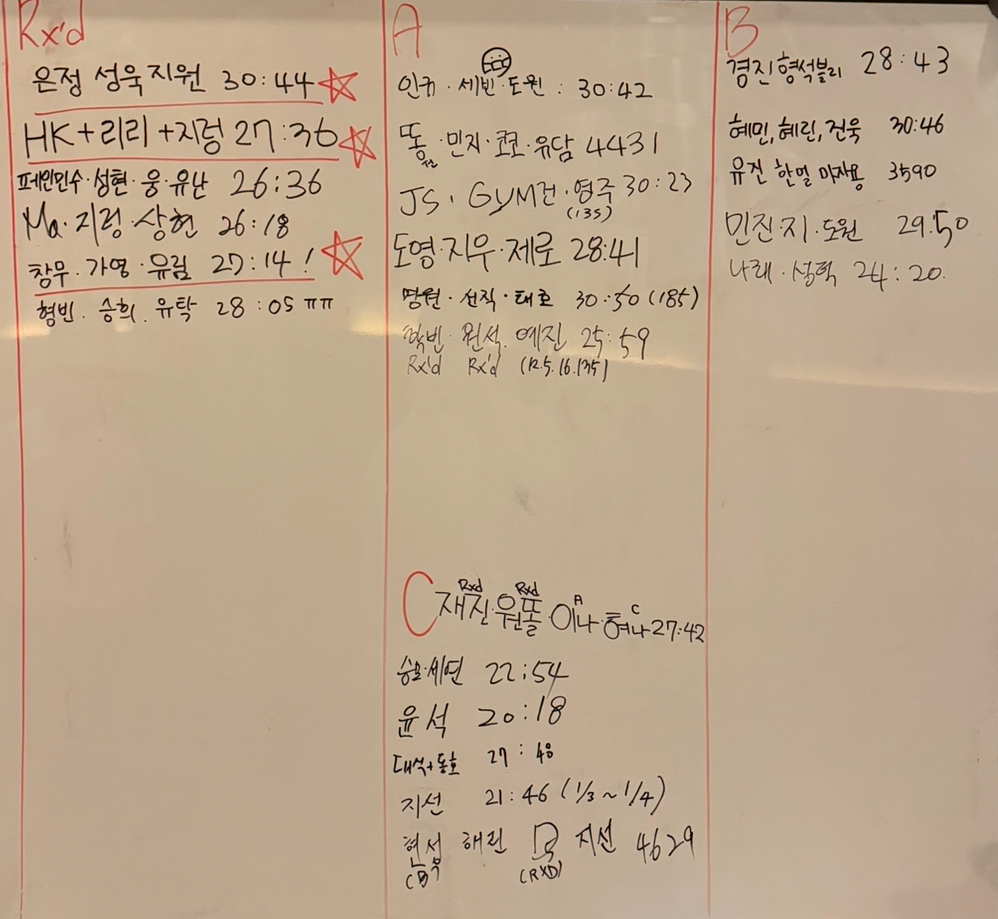 Rx'd
은정 성욱 지원 30:44
HK + 리리 + 지렁 27:36
페인민수·성현·웅·유난 26:36
Ma·지렁·상현 26:18
창무. 가영·유림 27:14!
형빈. 승희. 유탁 28:05 ㅠㅠ
A
인규·세빈·도원: 30:42
똘·민지·쿄쿄·유담 4431
JS. GYM건·영주 30:23
(135)
도영·지우·제로 28:41
명원·선직·태호 30:50 (185)
원석. 예진 25:59
Rx'd Rx'd (12.5.16.135)
B
경진 형석블리 28:43
혜민, 혜린, 진욱 30:46
유진 한얼 3590
민진·지·도원 29:50
나래·성혁 24:20.
C
Rxd Rxd A C
재진·원똘·이나·혀나 27:42
세연 22:54
윤석 20:18
대석+동호 27:48
지선 21:46 (1/3~1/4)
현성 해린 지선 4629
(B) (RXD)